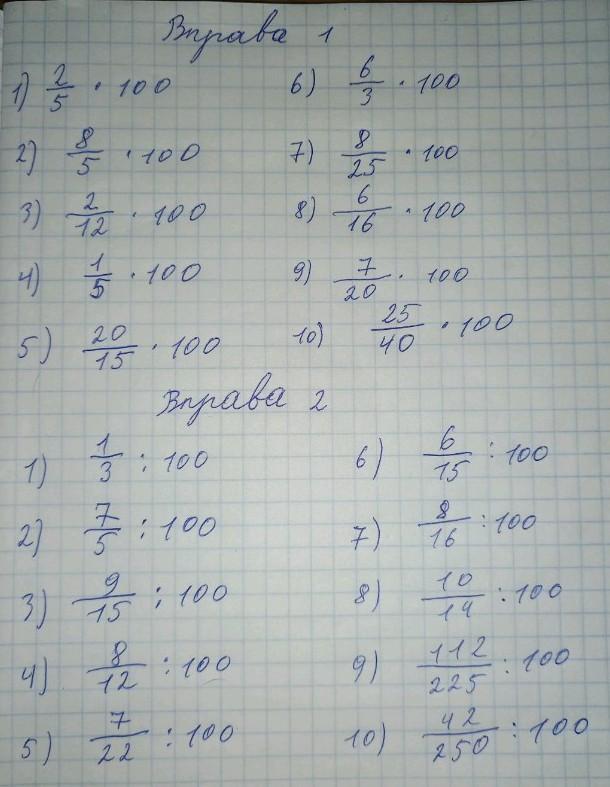 Вправа 1
1) 2/5 · 100
2) 8/5 · 100
3) 2/12 · 100
4) 1/5 · 100
5) 20/15 · 100
6) 6/3 · 100
7) 8/25 · 100
8) 6/16 · 100
9) 7/20 · 100
10) 25/40 · 100
Вправа 2
1) 1/3 : 100
2) 7/5 : 100
3) 9/15 : 100
4) 8/12 : 100
5) 7/22 : 100
6) 6/15 : 100
7) 8/16 : 100
8) 10/14 : 100
9) 112/225 : 100
10) 42/250 : 100